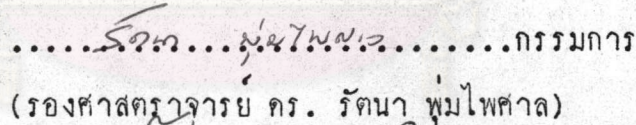 .....รัตนา...พุ่มไพศาล.................กรรมการ
(รองศาสตราจารย์ ดร. รัตนา พุ่มไพศาล)